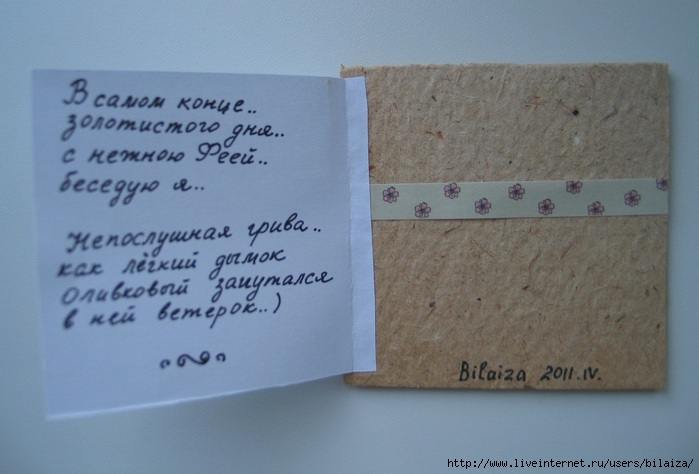 В самом конце..
золотистого дня..
с нежною Феей..
беседую я..
Непослушная грива..
как лёгкий дымок
Оливковый запутался
в ней ветерок..)
Bilaiza 2011.IV.
http://www.liveinternet.ru/users/bilaiza/